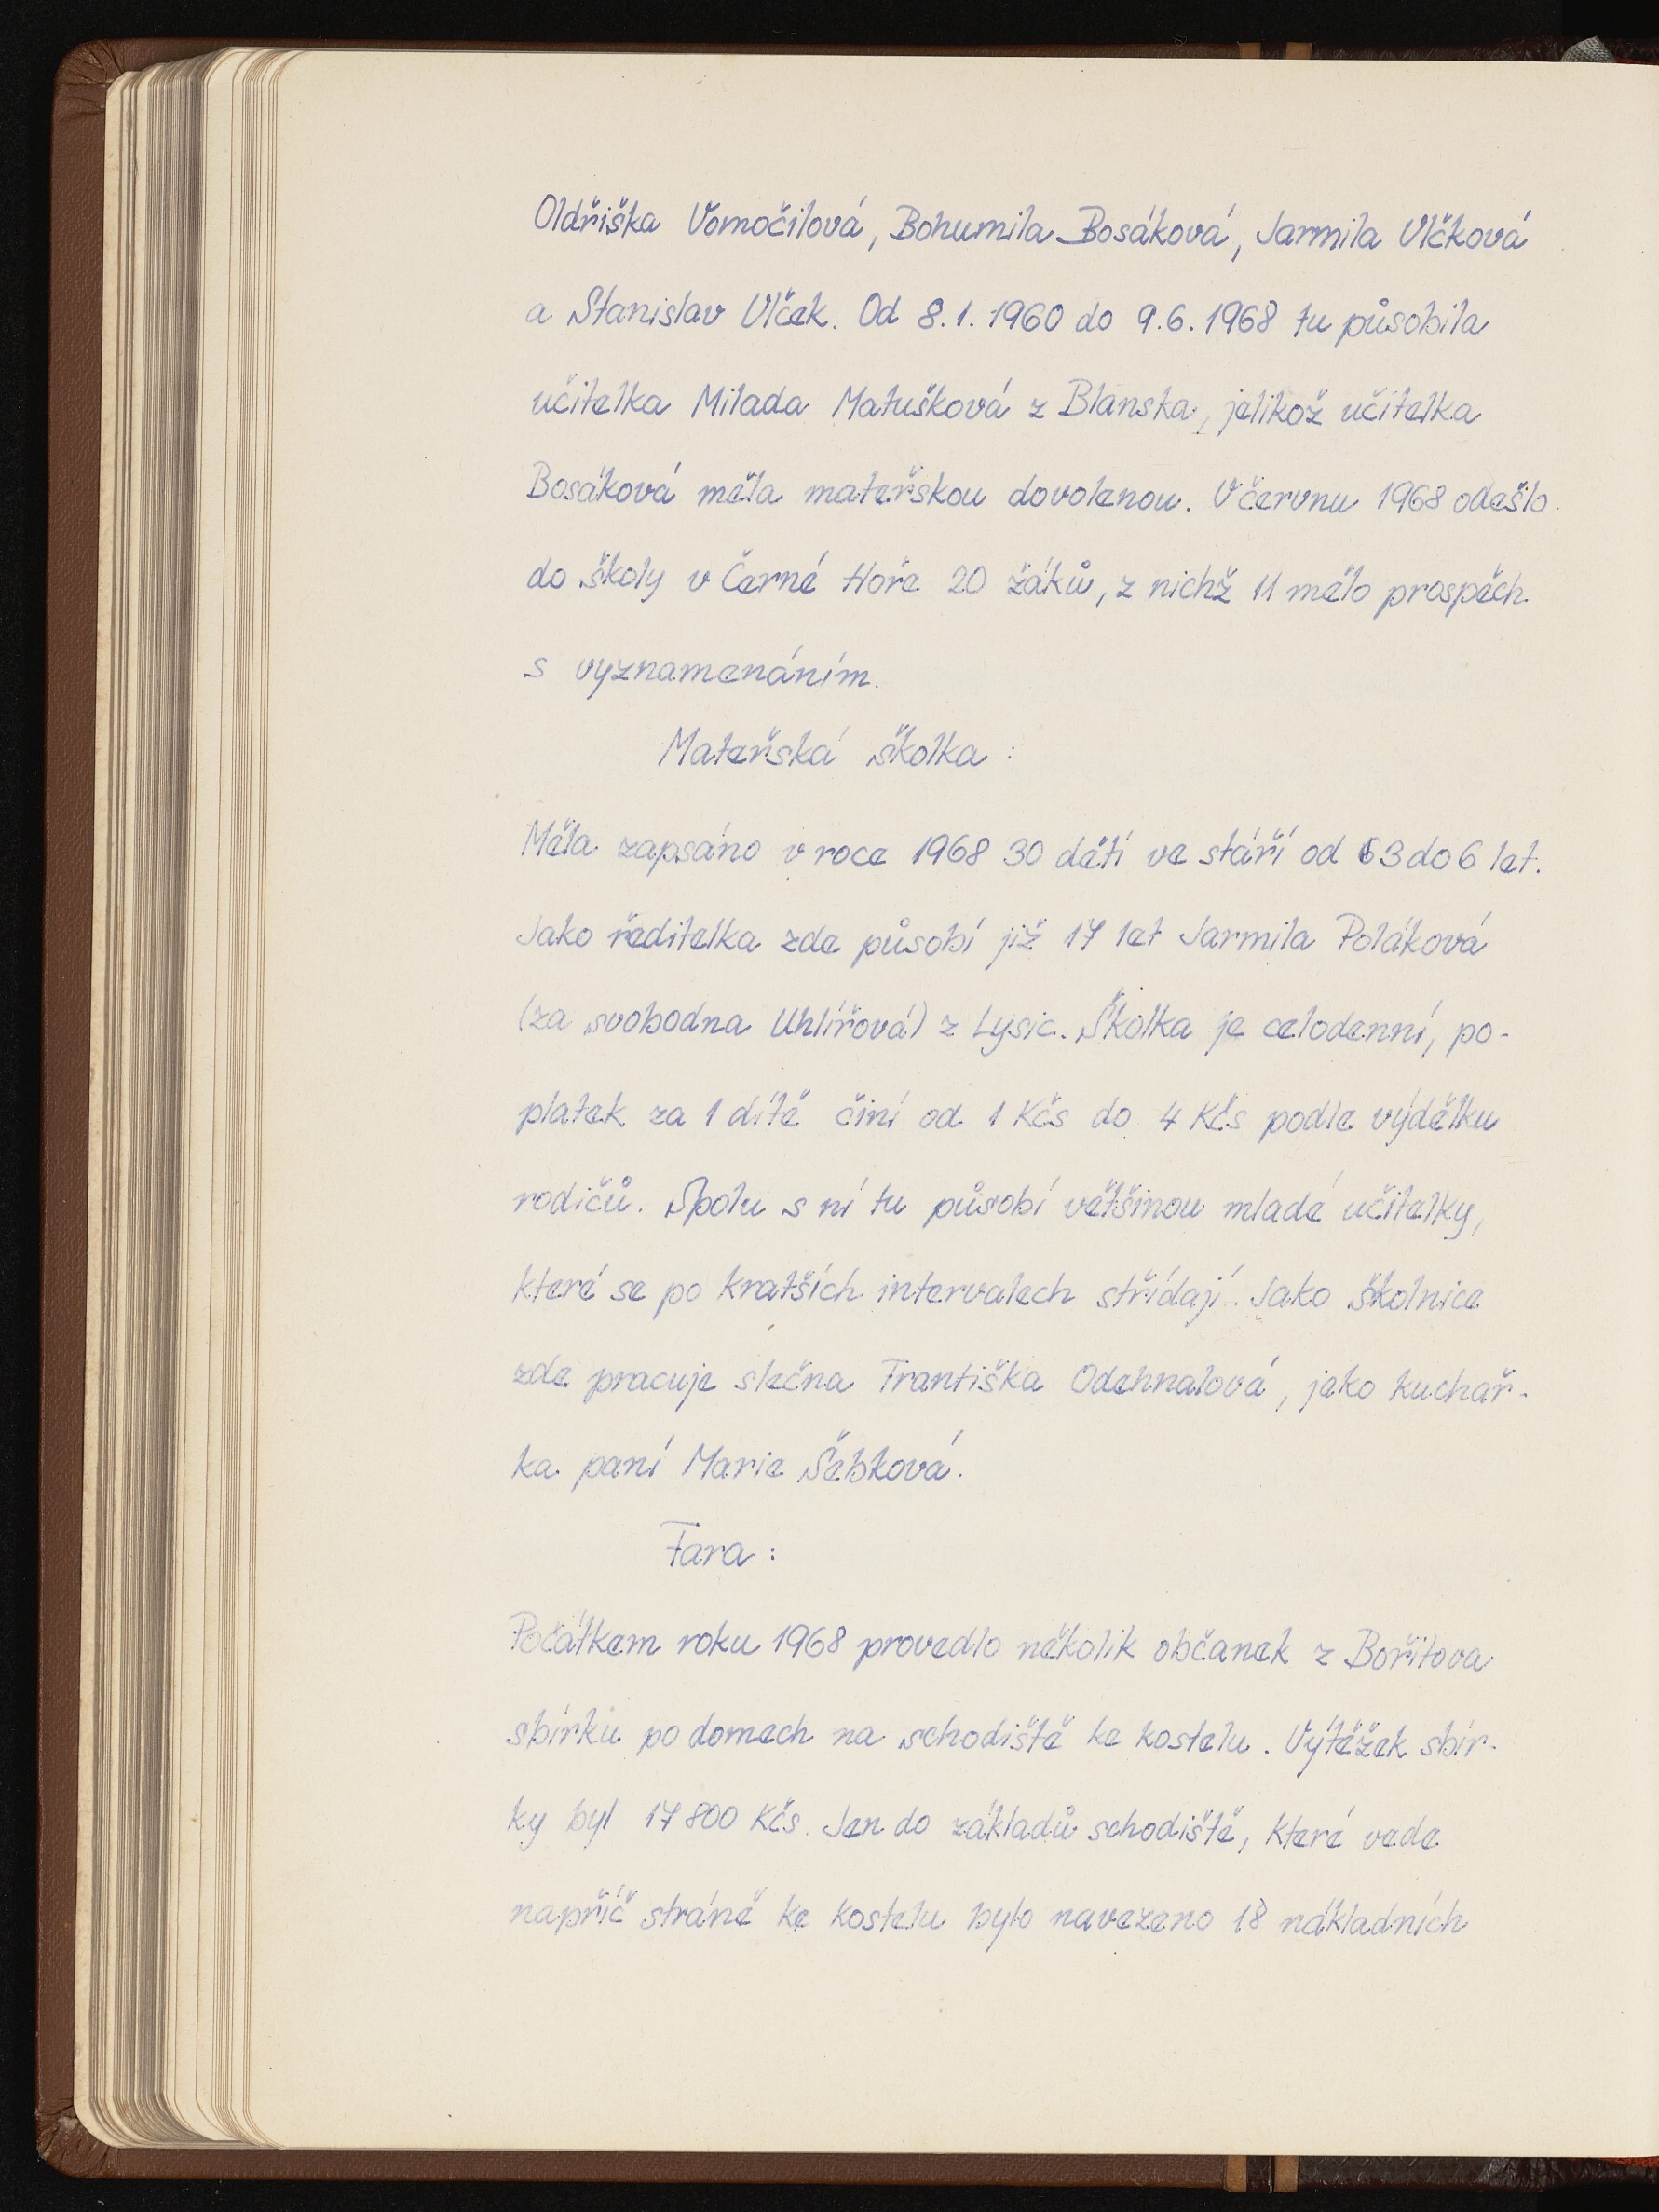 Oldřiška Vomočilová, Bohumila Bosáková, Jarmila Vlčková
a Stanislav Vlček. Od 8.1.1960 do 9.6.1968 tu působila
učitelka Milada Matušková z Blanska, jelikož učitelka
Bosáková měla mateřskou dovolenou. V červnu 1968 odešlo
do školy v Černé Hoře 20 žáků, z nichž 11 mělo prospěch
s vyznamenáním.
Mateřská školka :
Měla zapsáno v roce 1968 30 dětí ve stáří od 3 do 6 let.
Jako ředitelka zde působí již 17 let Jarmila Poláková
(za svobodna Uhlířová) z Lysic. Školka je celodenní, po-
platek za 1 dítě činí od 1 Kčs do 4 Kčs podle výdělku
rodičů. Spolu s ní tu působí většinou mladé učitelky,
které se po kratších intervalech střídají. Jako školnice
zde pracuje slečna Františka Odehnalová, jako kuchař-
ka paní Marie Šebková.
Fara :
Počátkem roku 1968 provedlo několik občanek z Bořitova
sbírku po domech na schodiště ke kostelu. Výtěžek sbír-
ky byl 17 800 Kčs. Jen do základů schodiště, které vede
napříč stráně ke kostelu bylo navezeno 18 nákladních